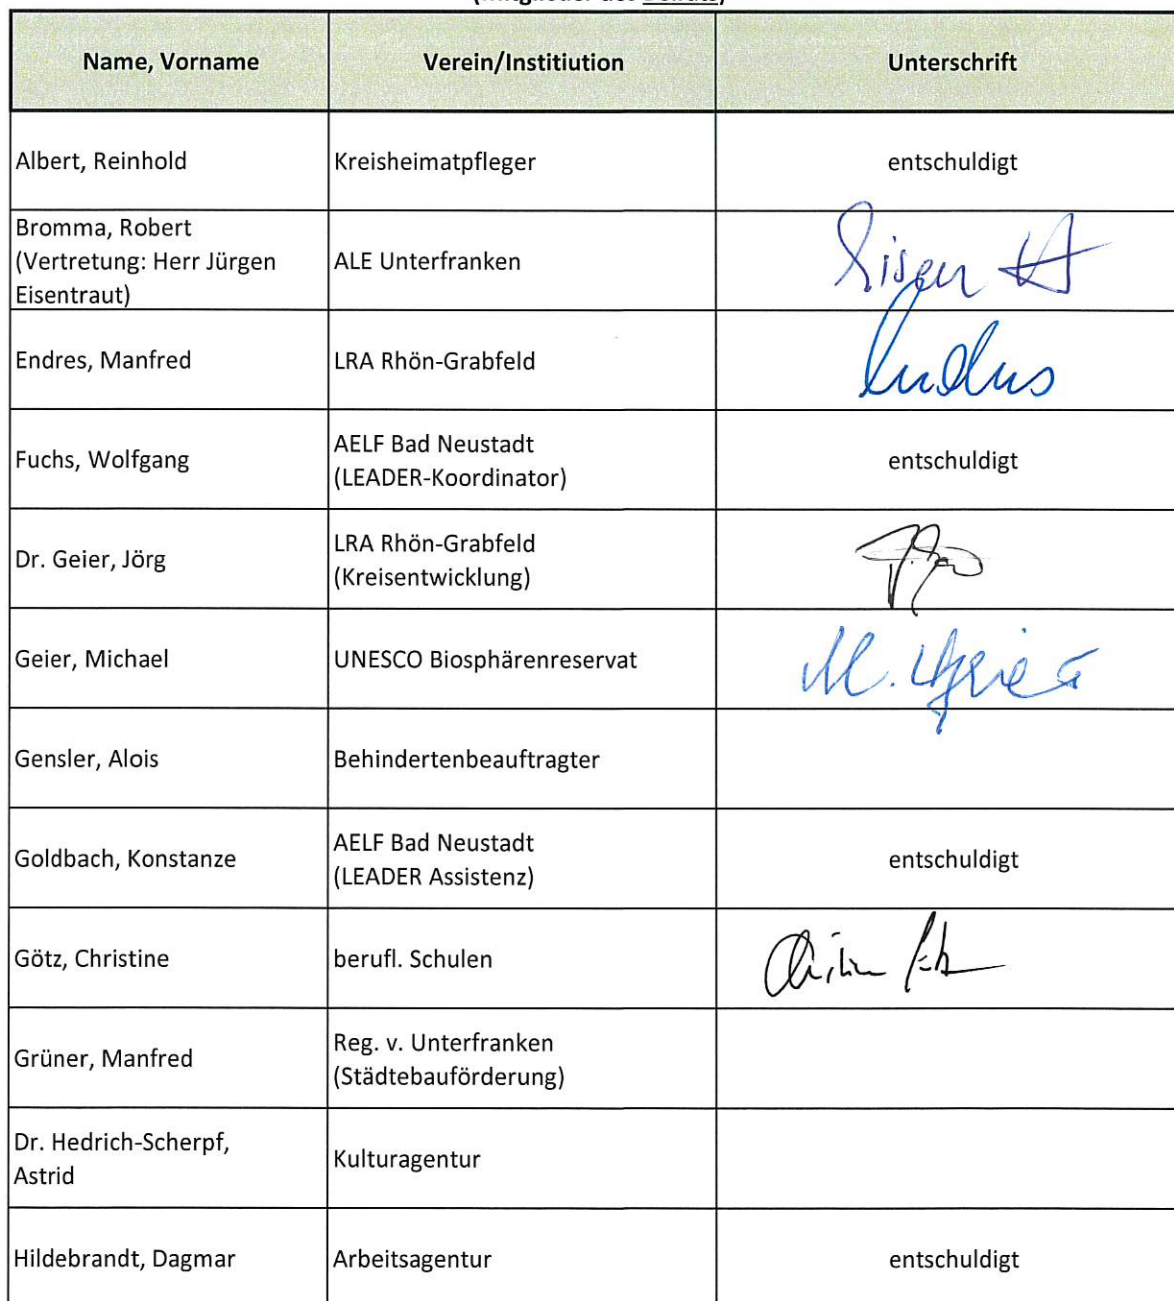 (Mitglieder des Beirats)
Name, Vorname Verein/Institiution Unterschrift
Albert, Reinhold Kreisheimatpfleger entschuldigt
Bromma, Robert
(Vertretung: Herr Jürgen
Eisentraut)
ALE Unterfranken
Endres, Manfred LRA Rhön-Grabfeld
Endres
Fuchs, Wolfgang
AELF Bad Neustadt
(LEADER-Koordinator)
entschuldigt
Dr. Geier, Jörg
LRA Rhön-Grabfeld
(Kreisentwicklung)
Geier, Michael UNESCO Biosphärenreservat
M. Geier
Gensler, Alois Behindertenbeauftragter
Goldbach, Konstanze
AELF Bad Neustadt
(LEADER Assistenz)
entschuldigt
Götz, Christine berufl. Schulen
Grüner, Manfred
Reg. v. Unterfranken
(Städtebauförderung)
Dr. Hedrich-Scherpf,
Astrid
Kulturagentur
Hildebrandt, Dagmar Arbeitsagentur entschuldigt